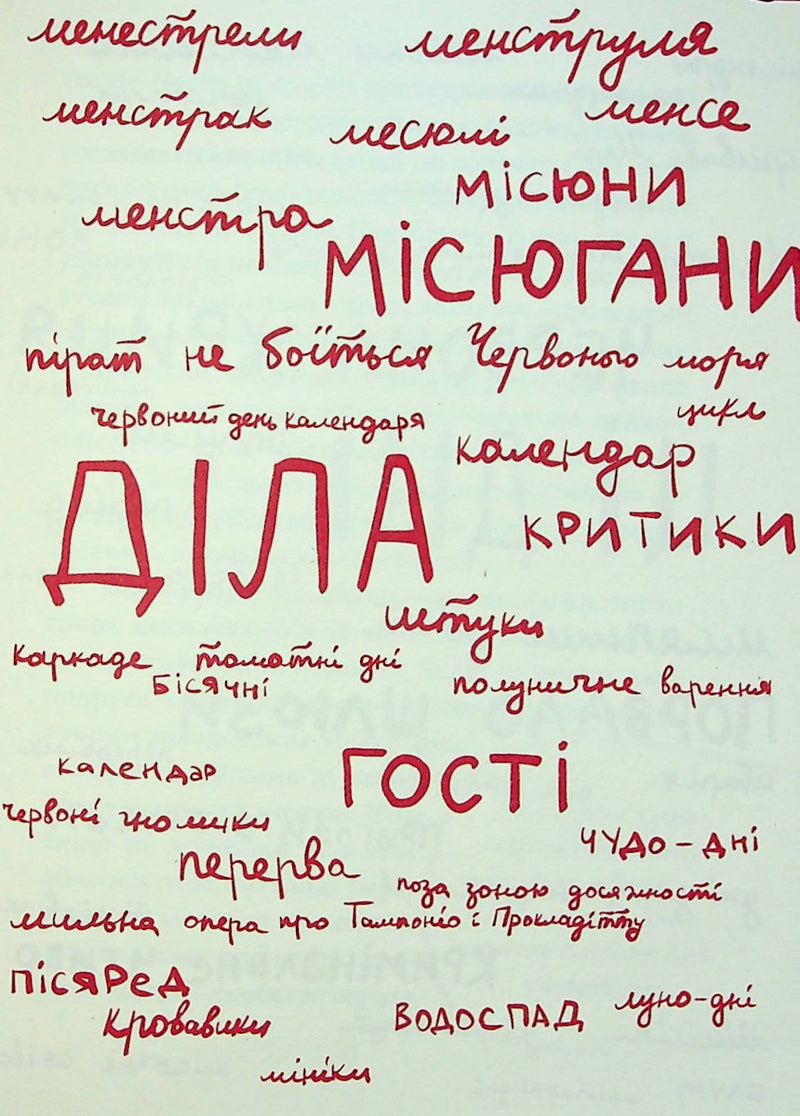 менестрели
менструля
менстрак
месюлі
менсе
місюни
менстра
місюгани
пірат не боїться Червоного моря
червоний день календаря
цикл
календар
ДІЛА
критики
штуки
каркаде
томатні дні
бісячні
полуничне варення
календар
гості
червоні гномики
чудо-дні
перерва
поза зоною досяжності
мильна опера про Тампоніо і Прокладітту
пісяРед
кровавики
водоспад
луно-дні
мініки